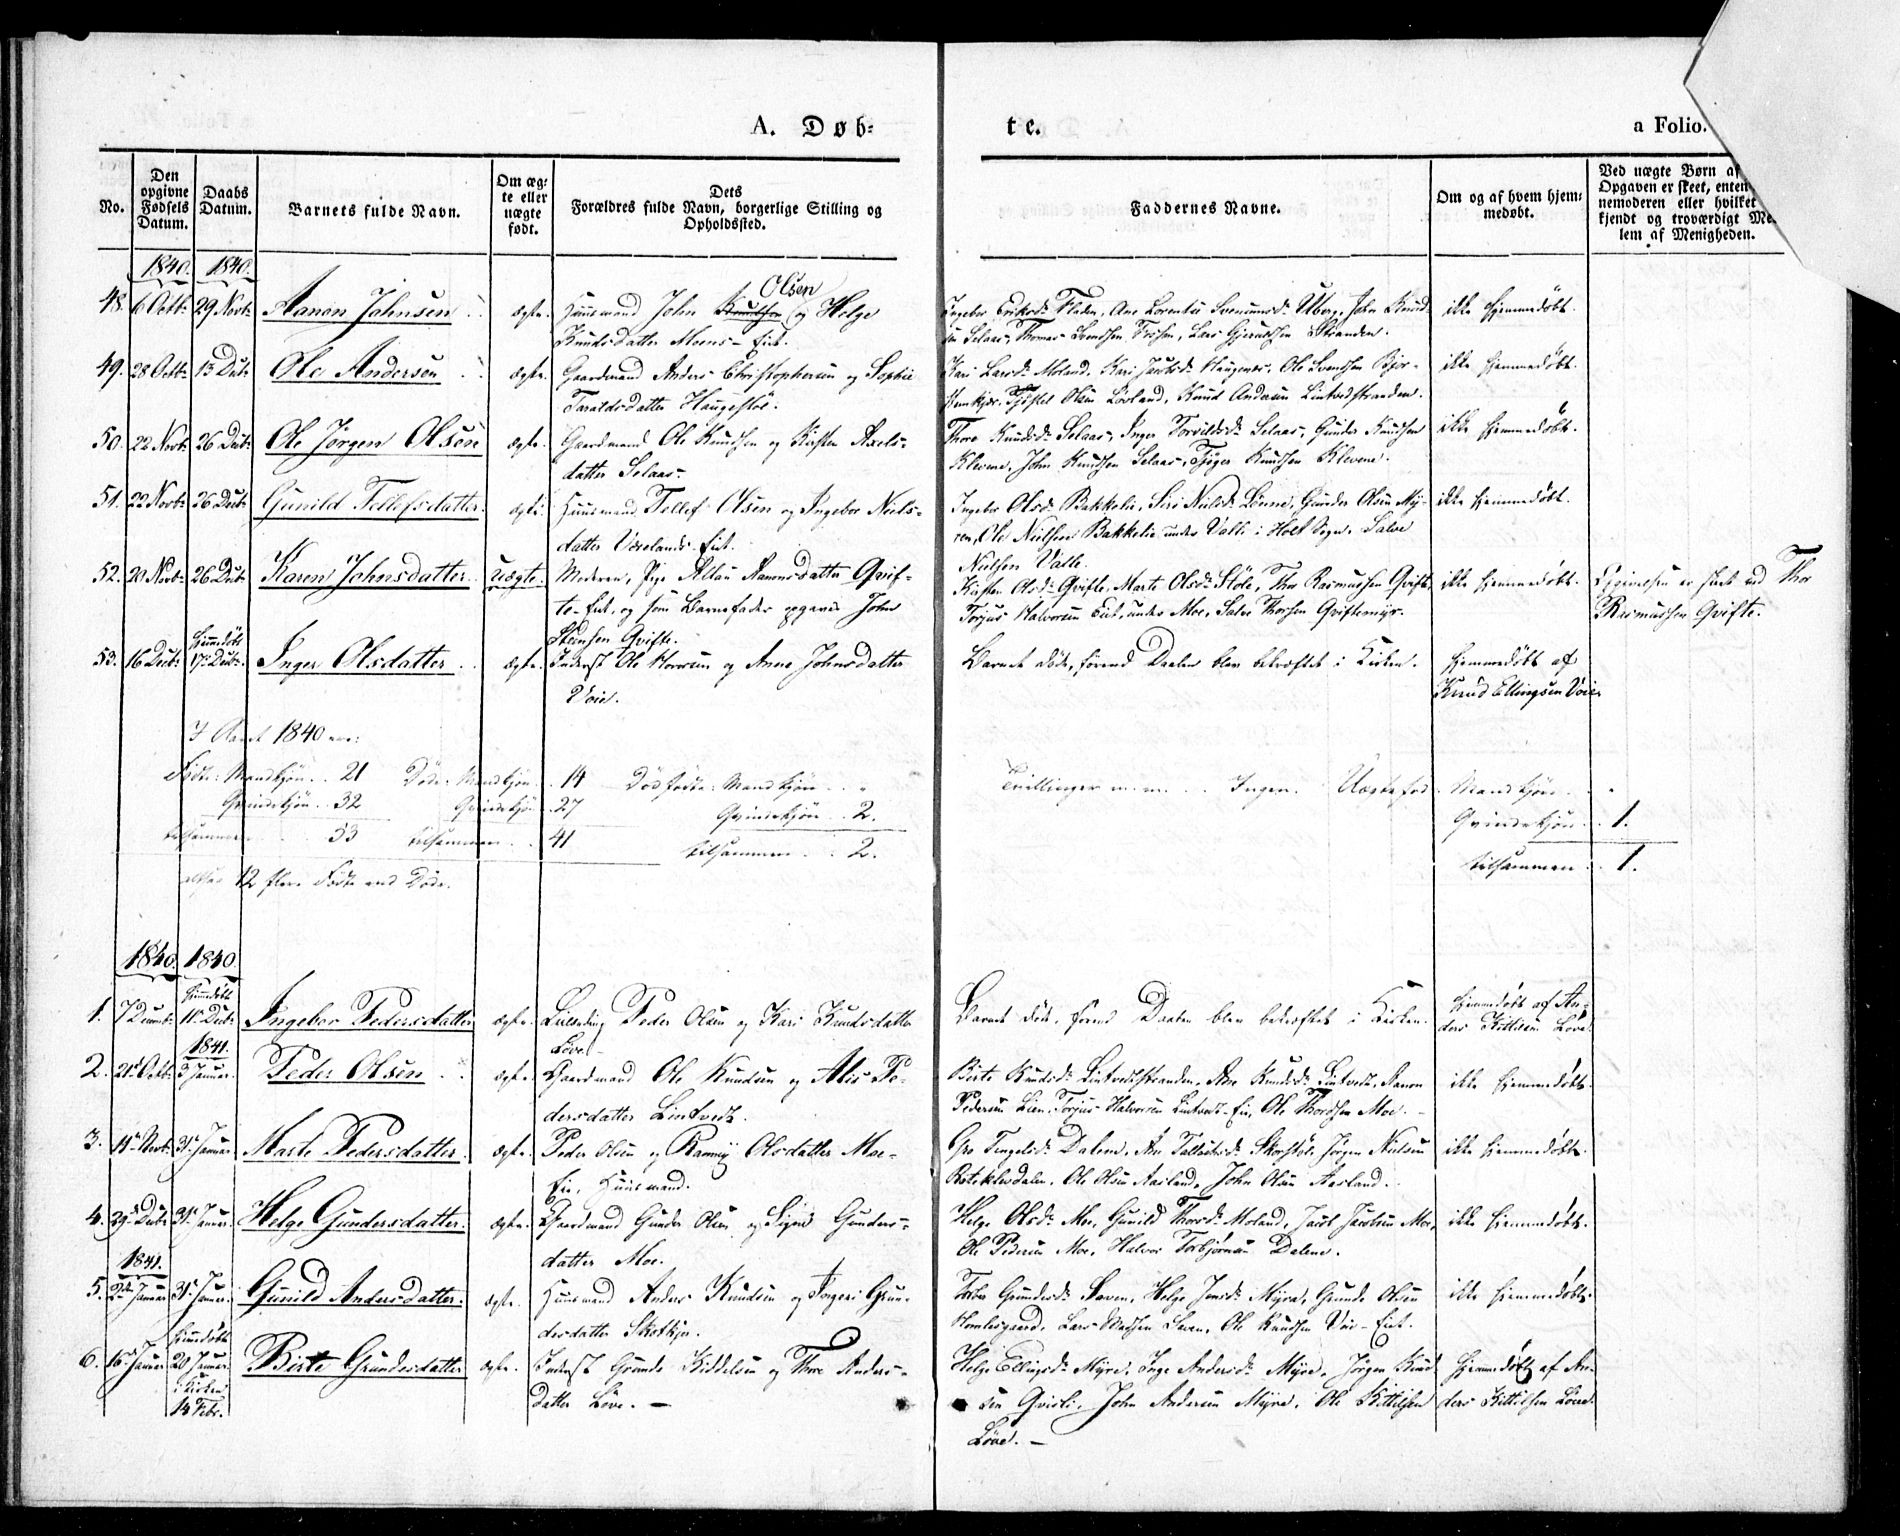 A. Døb=
te.
a Folio.
No.
Den opgivne Fødsels Datum.
Daabs Datum.
Barnets fulde Navn.
Om æg= te eller uægte født.
Dets Forældres fulde Navn, borgerlige Stilling og Opholdssted.
Faddernes Navne.
Om og af hvem hjem= medøbt.
Ved uægte Børn af
Opgaven er skeet, enten
nemoderen eller hvilket
kjendt og troværdigt Me
lem af Menigheden.
1840. 1840.
48. 6 Octb: 29 Novb: Aanon Johnsen ægte. Huusmand John Knudsen Olsen og Helge
Knudsdatter Moens-Eiet.
Ingebor Eriksd: Fladen, Ane Lorentse Svenumsd: Uberg, John Knud-
sen Selaas, Thomas Svendsen Stranden.
ikke hjemmedøbt.
49. 28 Octb: 13 Decb: Ole Andersen ægte. Gaardmand Anders Christophersen og Sophie
Taraldsdatter Haugestöl.
Kari Larsd: Moland, Kari Jacobsd: Haugenes, Ole Svendsen
Olsen Lövland, Knud Andersen Lintvedstranden.
ikke hjemmedøbt.
50. 22 Novb: 26 Decb: Ole Jörgen Olsen ægte. Gaardmand Ole Knudsen og Kirsten Axels-
datter Selaas.
Thore Knudsd: Selaas, Inger Torvildsd: Selaas, Gunder Knudsen
Klevene, John Knudsen Selaas, Knudsen Klevene.
ikke hjemmedøbt.
51. 22 Novb: 26 Decb: Gunild Tellefsdatter ægte. Huusmand Tellef Olsen og Ingebor Niels-
datter Værelands-Eiet.
Ingebor Olsd: Bakkelie, Siri Nielsd: Lönne, Gunder Olsen My-
ren, Ole Nielsen Bakkelie under Valle i Holt Sogn, Salve
Nielsen Valle.
ikke hjemmedøbt.
52. 20 Novb: 26 Decb: Karen Johnsdatter. uægte. Moderen, Pige Aanonsdatter Qvif-
te-Eiet, og som Barnefader opgaves John
Steensen Qvifte.
Kirsten Olsd: Qvifte, Marte Olsd: Stöle, Thor Rasmussen Qvifte,
Torjus Halvorsen Eiet, under Moe, Salve Thorsen Qviftemyr.
ikke hjemmedøbt.
Opgivelsen er skeet ved Thor
Rasmussen Qvifte.
53. 16 Decb: hjemmedöbt 17: Decb: Inger Olsdatter ægte. Inderst Ole og Anne Johnsdatter
Voie.
Barnet döde, förend Daaben blev bekræftet i Kirken.
hjemmedöbt af
Knud Ellingsen Voie
I Aaret 1840 ere:
Födte: Mandkjön . . 21 Döde: Mandkjön . . 14 Dödfödte: Mandkjön . . „ Tvillinger m.m. . . Ingen. Uægtefød. Mandkjön . . „
Qvindekjön . . 32 Qvindekjön . 27 Qvindekjön . . 2. Qvindekjön . . 1.
tilsammen . . 53 tilsammen . . 41 tilsammen . . 2. tilsammen . . 1.
altsaa 12 flere Födte end Döde.
1840. 1840.
1. 7 Decemb: hjemmedöbt 11: Decb: Ingebor Pedersdatter ægte. Leilænding Peder Olsen og Kari Knudsdatter
Löve.
Barnet döde, förend Daaben blev bekræftet i Kirken.
hjemmedöbt af An-
ders Kittilsen Löve.
1841.
2. 21 Octb: 3 Januar. Peder Olsen ægte. Gaardmand Ole Knudsen og Alis Pe-
dersdatter Lintvedt.
Birte Knudsd: Lintvedtstranden, Ane Knudsd: Lintvedt, Aanon
Pedersen Lien, Torjus Halvorsen Lintvedt-Eie, Ole Thordsen Moe.
ikke hjemmedöbt.
3. 14 Novb: 31 Januar Marte Pedersdatter. ægte. Peder Olsen og Olsdatter Moe-
Eie, Huusmand.
Gro Dalene, Jörgen Nielsen
Ole Olsen Aasland, John Olsen Aasland.
ikke hjemmedöbt.
4. 29 Decb: 31 Januar Helge Gundersdatter. ægte. Gaardmand Gunder Olsen og Signe Gunders-
datter Moe.
Helge Olsd: Moe, Gunild Thorsd: Moland, Jacob Jacobsen Moe,
Ole Pedersen Moe, Halvor Torbjörnsen Dalene.
ikke hjemmedöbt.
1841.
5. 2 Januar 31 Januar. Gunild Andersdatter. ægte. Huusmand Anders Knudsen og Ingeri Grun-
desdatter Skotkjer.
Grundesd: Saven, Helge Jensd: Myra, Grunde Olsen
Lars Madsen Saven, Ole Knudsen Voie-Eiet.
ikke hjemmedöbt.
6. 16 Januar hjemmedöbt 20 Januar. i Kirken 14 Febr. Birte Grundesdatter ægte. Inderst Grunde Kiddelsen og Thore Anders-
datter Löve. —
Helge Ellingsd: Myre, Inge Andersd: Myre, Jörgen Knud-
sen Qvisli, John Andersen Myre, Ole Kittilsen
Löve. —
hjemmedöbt af An-
ders Kittilsen Löve.